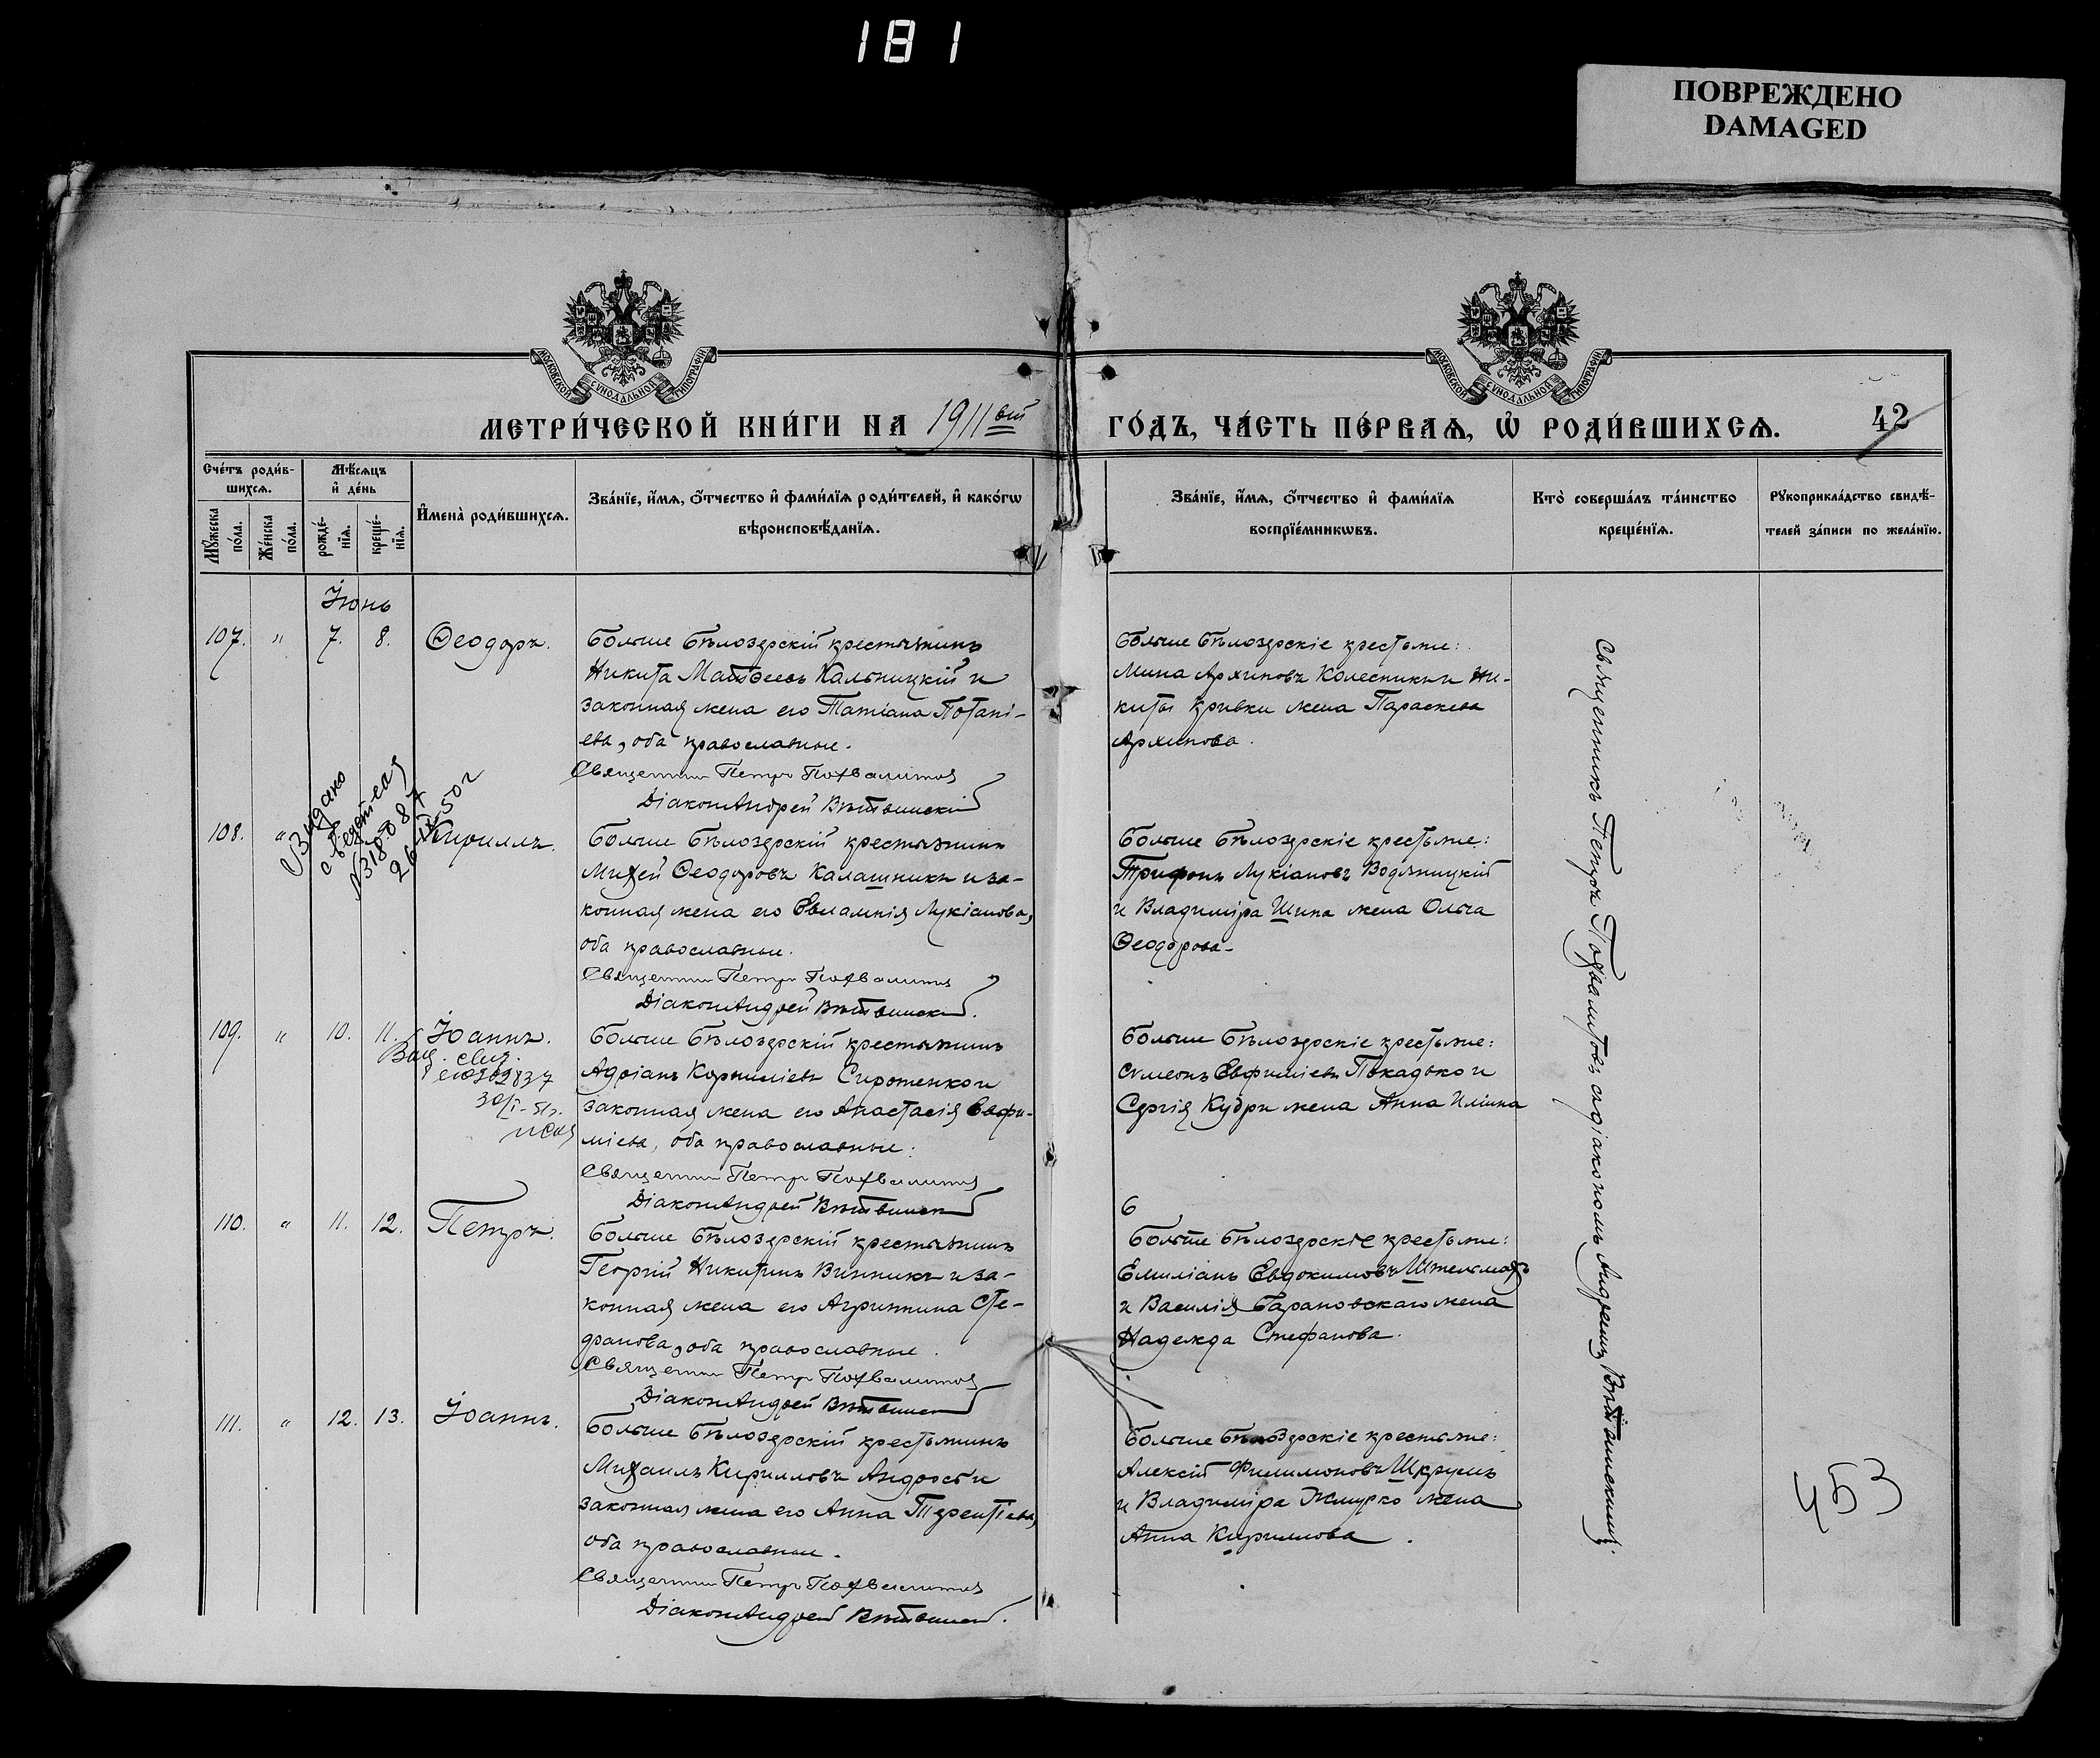 181
ПОВРЕЖДЕНО
DAMAGED
МОСКОВСКОЙ СѴНОДАЛЬНОЙ ТИПОГРАФІИ
МОСКОВСКОЙ СѴНОДАЛЬНОЙ ТИПОГРАФІИ
МЕТРИ́ЧЕСКОЙ КНИ́ГИ НА 1911ый
ГО́ДЪ, ЧА́СТЬ ПЕ́РВАѦ, Ѽ РОДИ́ВШИХСѦ.
42
Сче́тъ роди́в-
шихсѧ.
Мѣ́сѧцъ
и҆ де́нь
Мꙋ́жеска
по́ла.
Же́нска
по́ла.
рожде́-
нїѧ.
креще́-
нїѧ.
И҆мена̀ роди́вшихсѧ.
Зва́нїе, и҆́мѧ, ѻ҆́тчество и҆ фами́лїѧ роди́телей, и҆ како́гѡ
вѣроисповѣ́данїѧ.
Зва́нїе, и҆́мѧ, ѻ҆́тчество и҆ фами́лїѧ
воспрїе́мникѡвъ.
Кто̀ соверша́лъ та́инство
креще́нїѧ.
Рꙋкоприкла́дство свидѣ́-
телей за́писи по жела́нїю.
Іюнь
107. " 7. 8. Ѳеодоръ.
больше бѣлозерскій крестьянинъ
Никита Матѳеевъ Кальницкій и
законная жена его Татіана Потапі-
ева, оба православные.
Священник Петръ Похвалитов
Діаконъ Андрей Вѣтвинскій
больше бѣлозерскіе крестьяне:
Мина Архиповъ Колесникъ и Ни-
киты Кривки жена Параскева
Архипова.
Видано
свідотство
26 50 г
108. " Кириллъ.
больше бѣлозерскій крестьянинъ
Михей Ѳеодоровъ Калашникъ и за-
конная жена его Евлампія Лукіанова,
оба православные.
Священник Петръ Похвалитов
Діаконъ Андрей Вѣтвинский.
больше бѣлозерскіе крестьяне:
Трифонъ Лукіановъ Водяницкій
и Владиміра Шина жена Ольга
Ѳеодорова.
109. " 10. 11. Іоаннъ.
Выд. свид.
30/I-51г.
больше бѣлозерскій крестьянинъ
Адріанъ Корниліевъ Сиротенко и
законная жена его Анастасія Евфи-
міева, оба православные.
Священник Петръ Похвалитов
Діаконъ Андрей Вѣтвинский
больше бѣлозерскіе крестьяне:
Симеонъ Евфиміевъ Покадько и
Сергія Кудри жена Анна Иліина
110. " 11. 12. Петръ.
больше бѣлозерскій крестьянинъ
Георгій Никитинъ Винникъ и за-
конная жена его Агриппина Сте-
фанова, оба православные.
Священник Петръ Похвалитов
Діаконъ Андрей Вѣтвинский
б
больше бѣлозерскіе крестьяне:
Емиліанъ Евдокимовъ Штельмахъ
и Василія Барановскаго жена
Надежда Стефанова.
111. " 12. 13. Іоаннъ.
больше бѣлозерскій крестьянинъ
Михаилъ Кирилловъ Андросъ и
законная жена его Анна Терентіева,
оба православные.
Священник Петръ Похвалитов
Діаконъ Андрей Вѣтвинский.
больше бѣлозерскіе крестьяне:
Алексій Филимоновъ Шкрумъ
и Владиміра Жмурко жена
Анна Кириллова.
Священникъ Петръ Похвалитовъ съ діакономъ Андреемъ Вѣтвинскимъ.
453